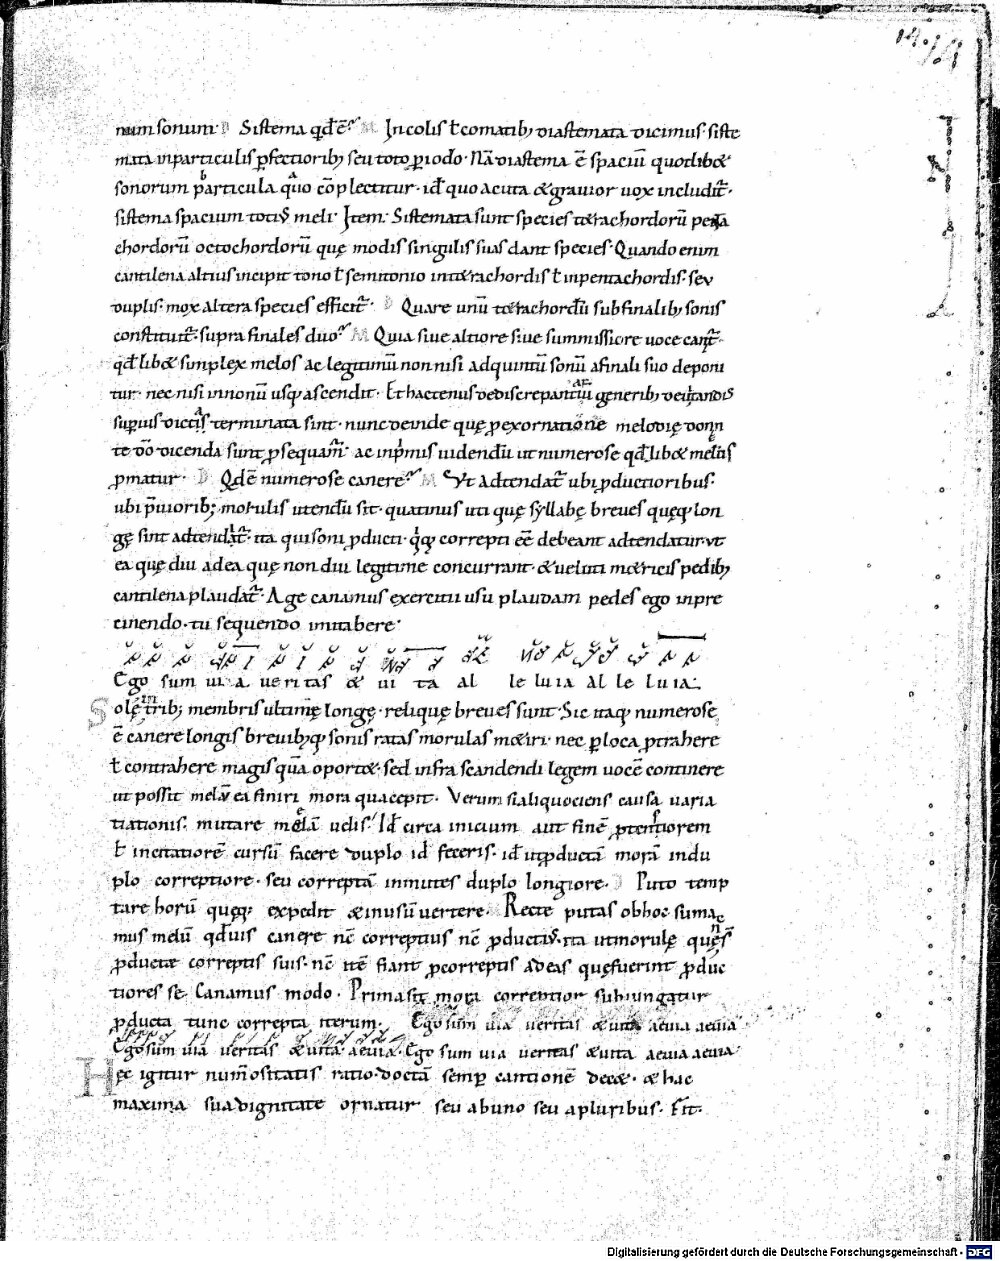 14.
num sonum· D Sistema qđ ē? M In colis ł comatib; diastemata dicimus· siste
mata in particulis ꝑfectiorib; seu toto ꝑiodo· Nā diastema ē spaciū quodlib&
sonorum particula quo cōplectitur· id quo acuta & grauior uox includit᷑·
sistema spacium totiꝰ meli· Item· Sistemata sunt species tetrachordorū penta
chordorū octochordorū quę modis singulis suas dant species· Quando enim
cantilena altius incipit tono ł semitonio in tetrachordis ł in pentachordis· seu
duplis· mox altera species efficit᷑· D Quare unū tetrachordū sub finalib; sonis
constituit᷑· supra finales duo? M Quia siue altiore siue summissiore uoce canit᷑·
qđlib& simplex melos ac legitimū non nisi ad quintū sonū a finali suo deponi
tur· nec nisi in nonū usq; ascendit· Et hactenus de discrepantiū generib;
supius dictis terminata sint· nunc deinde quę ꝓ exornatione melodię
te dicenda sunt ꝓsequam᷑· ac inpͥmis uidendū ut numerose qđlib& melos
ꝓmatur· D Qđ ē numerose canere? M Ut adtendat᷑ ubi ꝓductiorib;
ubi morulis utendū sit· quatinus uti quę syllabę breues quęq; lon
gę sint adtendit᷑· ita qui soni ꝓducti· qͥq; correpti eē debeant adtendatur· ut
ea quę diu ad ea quę non diu legitime concurrant· & ueluti metricis pedib;
cantilena plaudat᷑· Age canamus exercitii usu plaudam pedes ego in pre
cinendo· tu sequendo imitabere·
Ego sum ui a ueritas & ui ta al le lu ia al le lu ia·
Solę in trib; membris ultimę longę· reliquę breues sunt· Sic itaq; numerose
ē canere longis breuib;q; sonis ratas morulas metiri· nec ꝑ loca ꝓtrahere
ł contrahere magis quā oportet· sed infra scandendi legem uocē continere
ut possit melū ea finiri mora qua cepit· Verum si aliquociens causa uaria
tiationis· mutare uelis· Id circa inicium aut finē ꝓtensiorem
ł incitatiorē cursū facere duplo id feceris· id ut ꝓductā morā indu
plo correptiore· seu correptā inmutes duplo longiore· D Puto temp
tare horū expedit & in usū uertere· M Recte putas ob hoc suma
mus melū qđuis canere nc̄ correptius nc̄ ꝓductiꝰ· ita ut morulę
ꝓductæ correptis suis· nc̄ itē fiant ꝓ correptis ad eas quę fuerint ꝓduc
tiores se· Canamus modo· Prima sit mora correptior subiungatur
ꝓducta tunc correpta iterum· Ego sum uia ueritas & uita aeuia aeuia
Ego sum uia ueritas & uita· aeuia· Ego sum uia ueritas & uita aeuia aeuia·
Hęc igitur num̄ositatis ratio· doctā semꝑ cantionē dec&· & hac
maxima sua dignitate ornatur seu ab uno seu a pluribus· Sit·
Digitalisierung gefördert durch die Deutsche Forschungsgemeinschaft - DFG